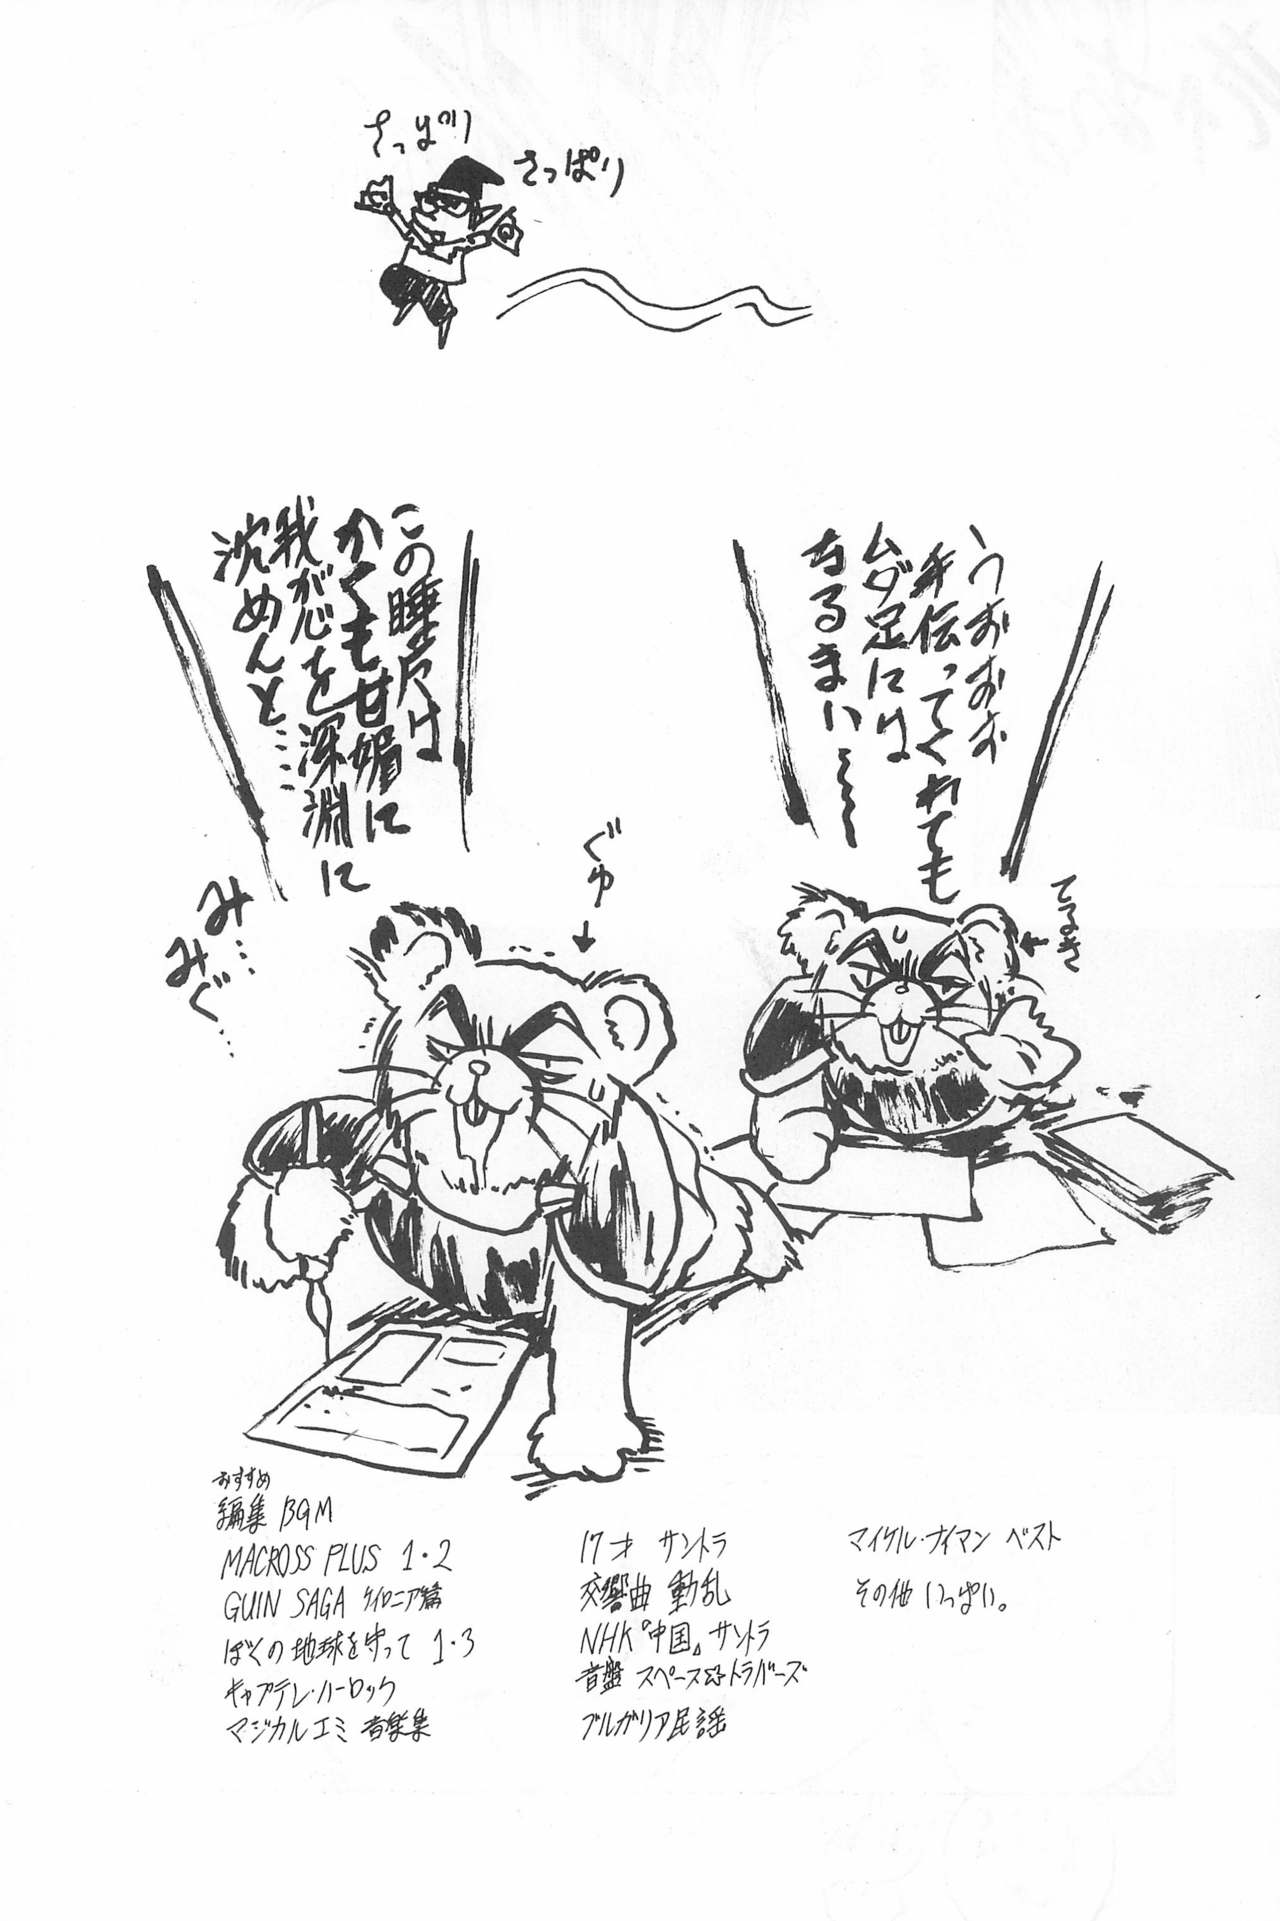 さっぱり
さっぱり
うおおおお
手伝ってくれても
ムダ足には
なるまい〜〜〜
この睡戻は
かくも甘媚に
我が心を深淵に
沈めんと……
てるき
ぐゅ
み…
みぐ…
おすすめ
編集 BGM
MACROSS PLUS 1・2
GUIN SAGA ケイロニア篇
ぼくの地球を守って 1・3
キャプテン・ハーロック
マジカルエミ 音楽集
17才 サントラ
交響曲 動乱
NHK『中国』サントラ
音盤 スペース☆トラバーズ
ブルガリア民謡
マイケル・ナイマン ベスト
その他 いっぱい。